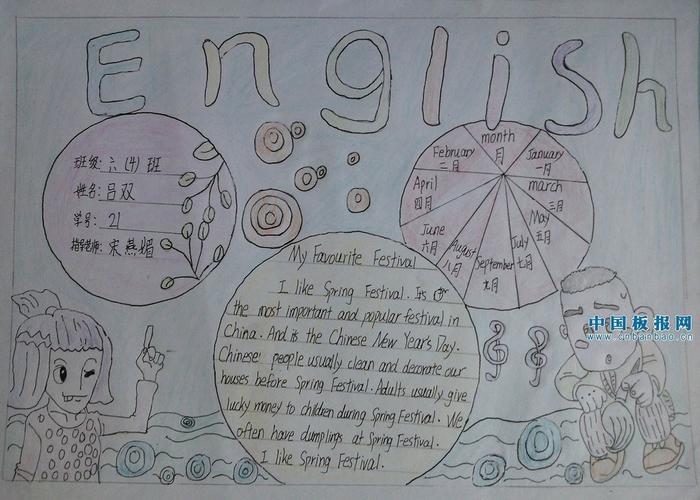 English
班级: 六 (4) 班
姓名: 吕双
学号: 21
指导老师: 宋燕媚
month
月
January
一月
February
二月
march
三月
April
四月
May
五月
June
六月
July
七月
August
八月
September
九月
My Favourite Festival
I like Spring Festival. Is
the most important and popular festival in
China. And is the Chinese New Year's Day.
Chinese people usually clean and decorate our
houses before Spring Festival. Adults usually give
lucky money to children during Spring Festival. We
often have dumplings at Spring Festival.
I like Spring Festival.
中国板报网
www.cnbanbao.cn